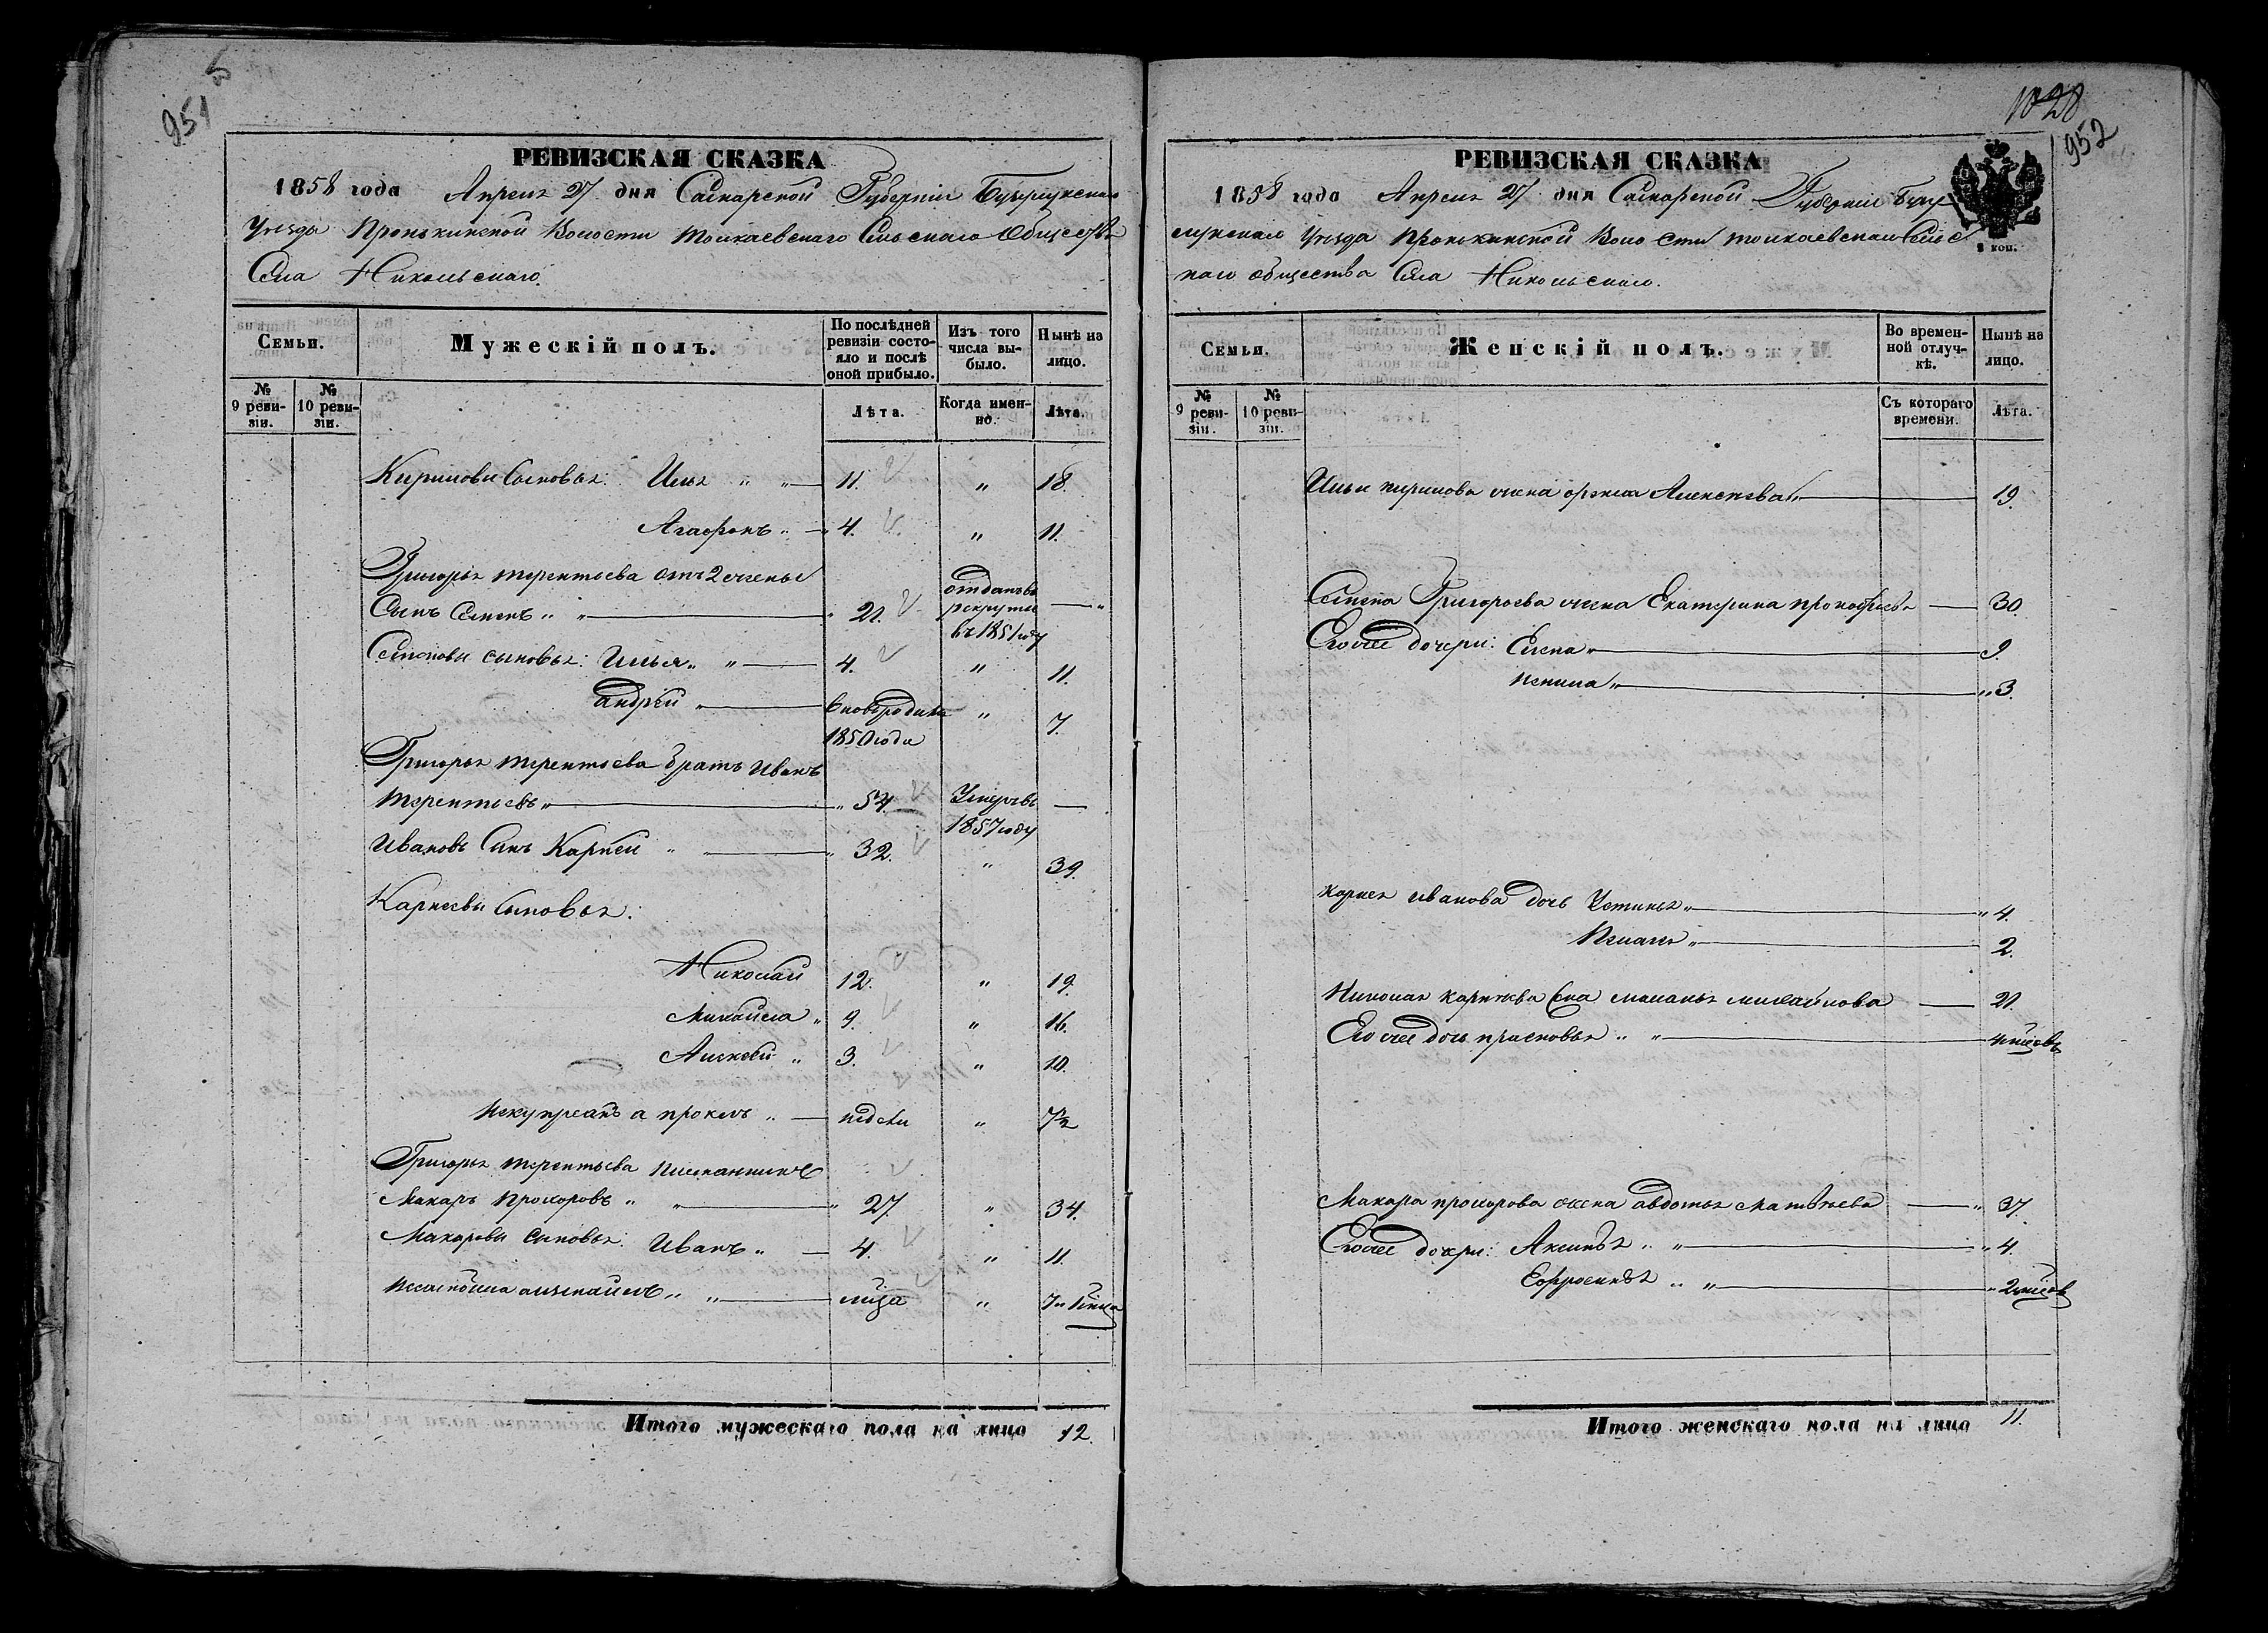 951
РЕВИЗСКАЯ СКАЗКА
1858 года Апреля 27 дня Самарской Губерніи Бузулукскаго
Уезда Пронькинской Волости Толкаевскаго Сельскаго Общества
Села Никольскаго.
Семьи.
Мужескій полъ.
По послѣдней ревизіи состояло и послѣ оной прибыло.
Изъ того числа выбыло.
Нынѣ на лицо.
№ 9 ревизіи.
№ 10 ревизіи.
Лѣта.
Когда именно.
Лѣта.
Кириловы Сыновья: Илья " " 11. " 18.
Агафонъ " 4. " 11.
Григорья терентьева отъ 2 жены
Сынъ Семенъ " " 21. отданъ въ рекруты въ 1851 году — "
Семеновы сыновья: Илья " " 4. " 11.
андрей " вновьродила 1850 года " 7.
Григорья терентьева братъ Иванъ
терентьевъ " " 54. Умеръ въ 1857 году —
Ивановъ Сынъ Карней " " 32. " 39.
Карнеевы Сыновья:
Николай 12. " 19.
Михайла " 9. " 16.
Алексей " 3. " 10.
" недели " 7½
Григорья терентьева племянникъ
Макаръ Прохоровъ " " 27. " 34.
Макаровы сыновья: Иванъ " 4. " 11.
" " "
Итого мужескаго пола на лицо 12.
1028
952
РЕВИЗСКАЯ СКАЗКА
1858 года Апреля 27 дня Самарской Губерніи Бузу
лукскаго Уезда Пронькинской Волости толкаевскаго Сельс
каго общества Села Никольскаго.
2 коп.
Семьи.
Женскій полъ.
Во временной отлучкѣ.
Нынѣ на лицо.
№ 9 ревизіи.
№ 10 ревизіи.
Съ котораго времени.
Лѣта.
Ильи кирилова жена Алексеева " 19.
Семена Григорьева жена Екатерина прокофьева 30.
Егоже дочери: Елена " 9.
" " 3.
Карнея иванова дочь Устинья " " 4.
" 2.
Николая карнеева жена маланья михайлова 21.
Егоже дочь прасковья " " 4 мѣсяцовъ
Макара прохорова жена авдотья матвѣева " 37.
Егоже дочери: Аксинья " " " 4.
Ефросинья " " " 2 мѣсяцов
Итого женскаго пола на лицо 11.